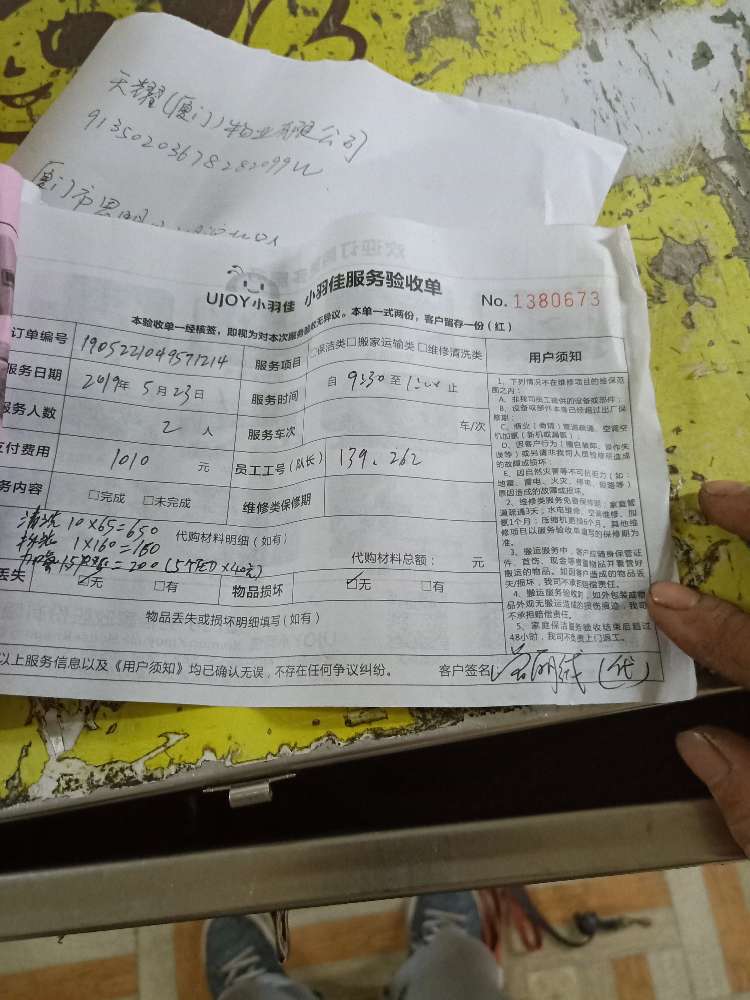 天耀(厦门)物业有限公司
91350203678282099W
厦门市思明
UJOY小羽佳 小羽佳服务验收单
No. 1380673
本验收单一经核签，即视为对本次服务验收无异议。本单一式两份，客户留存一份（红）
订单编号 190522104957 1214 服务项目 □保洁类□搬家运输类□维修清洗类
服务日期 2019年 5月23日 服务时间 自 9:30 至 止
服务人数 2 人 服务车次 车/次
支付费用 1010 元 员工工号（队长） 139、262
务内容 □完成 □未完成 维修类保修期
清洗 10×65=650 代购材料明细（如有）
1×160=160
=200 (5 ×40元) 代购材料总额： 元
丢失 ☑无 □有 物品损坏 ☑无 □有
物品丢失或损坏明细填写（如有）
以上服务信息以及《用户须知》均已确认无误，不存在任何争议纠纷。 客户签名 (代)
用户须知
1、下列情况不在维修项目的维保范
围之内：
A、非我司员工提供的设备或部件；
B、设备或部件本身已经超过出厂保
修期；
C、商业（商铺）管道疏通、空调空
机加氟（新机或漏氟）
D、因客户行为（擅自装卸、操作失
误等）或另请非我司人员检修所造成
的故障或损坏；
E、因自然灾害等不可抗拒力（如：
地震、雷电、火灾、停电、短路等）
原因造成的故障或损坏。
2、维修类服务免费保修期：家庭管
道疏通3天；水电维修、空调维修、加
氟1个月；压缩机更换6个月。其他维
修项目以服务验收单填写的保修期为
准。
3、搬运服务中，客户应随身保管证
件、首饰、现金等贵重物品并看管好
搬运的物品。如因客户造成的物品丢
失/损坏，我司不承担赔偿责任。
4、搬运服务验收时，如外包装或物
品外观无搬运造成的损伤痕迹，我司
不承担赔偿责任。
5、家庭保洁服务验收结束后超过
48小时，我司不负责上门返工。